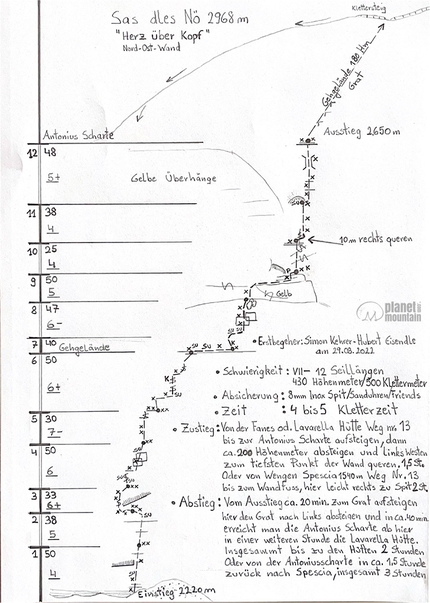 Sas dles Nö 2968m
"Herz über Kopf"
Nord-Ost-Wand
Klettersteig
Gehgelände 180 Hm
Grat
Antonius Scharte
Ausstieg 2650m
12 48
5+
Gelbe Überhänge
11 38
4
10m rechts queren
10 25
4
9 50
5
Gelb
8 47
6-
planet
mountain
7 40 Gehgelände
Erstbegeher: Simon Kehrer-Hubert Eisendle
am 29.08.2022
6 50
6+
• Schwierigkeit: VII- 12 Seillängen
430 Höhenmeter/500 Klettermeter
• Absicherung: 8mm Inox Spit/Sanduhren/Friends
• Zeit : 4 bis 5 Kletterzeit
5 30
7-
• Zustieg: Von der Fanes od. Lavarella Hütte Weg nr. 13
bis zur Antonius Scharte aufsteigen, dann
ca. 200 Höhenmeter absteigen und links Westen
zum tiefsten Punkt der Wand queren, 1,5 St.
Oder von Wengen Spescia 1540m Weg Nr. 13
bis zum Wandfuss, hier leicht rechts zu Spit 2 St.
4 50
6
3 33
6+
• Abstieg: Vom Ausstieg ca. 20 min. zum Grat aufsteigen
hier den Grat nach Links absteigen und in ca. 40 min.
erreicht man die Antonius Scharte ab hier
in einer weiteren Stunde die Lavarella Hütte.
Insgesammt bis zu den Hütten 2 Stunden
Oder von der Antoniusscharte in ca. 1,5 Stunde
zurück nach Spescia, insgesamt 3 Stunden
2 38
5
1 50
4
Einstieg 2220m